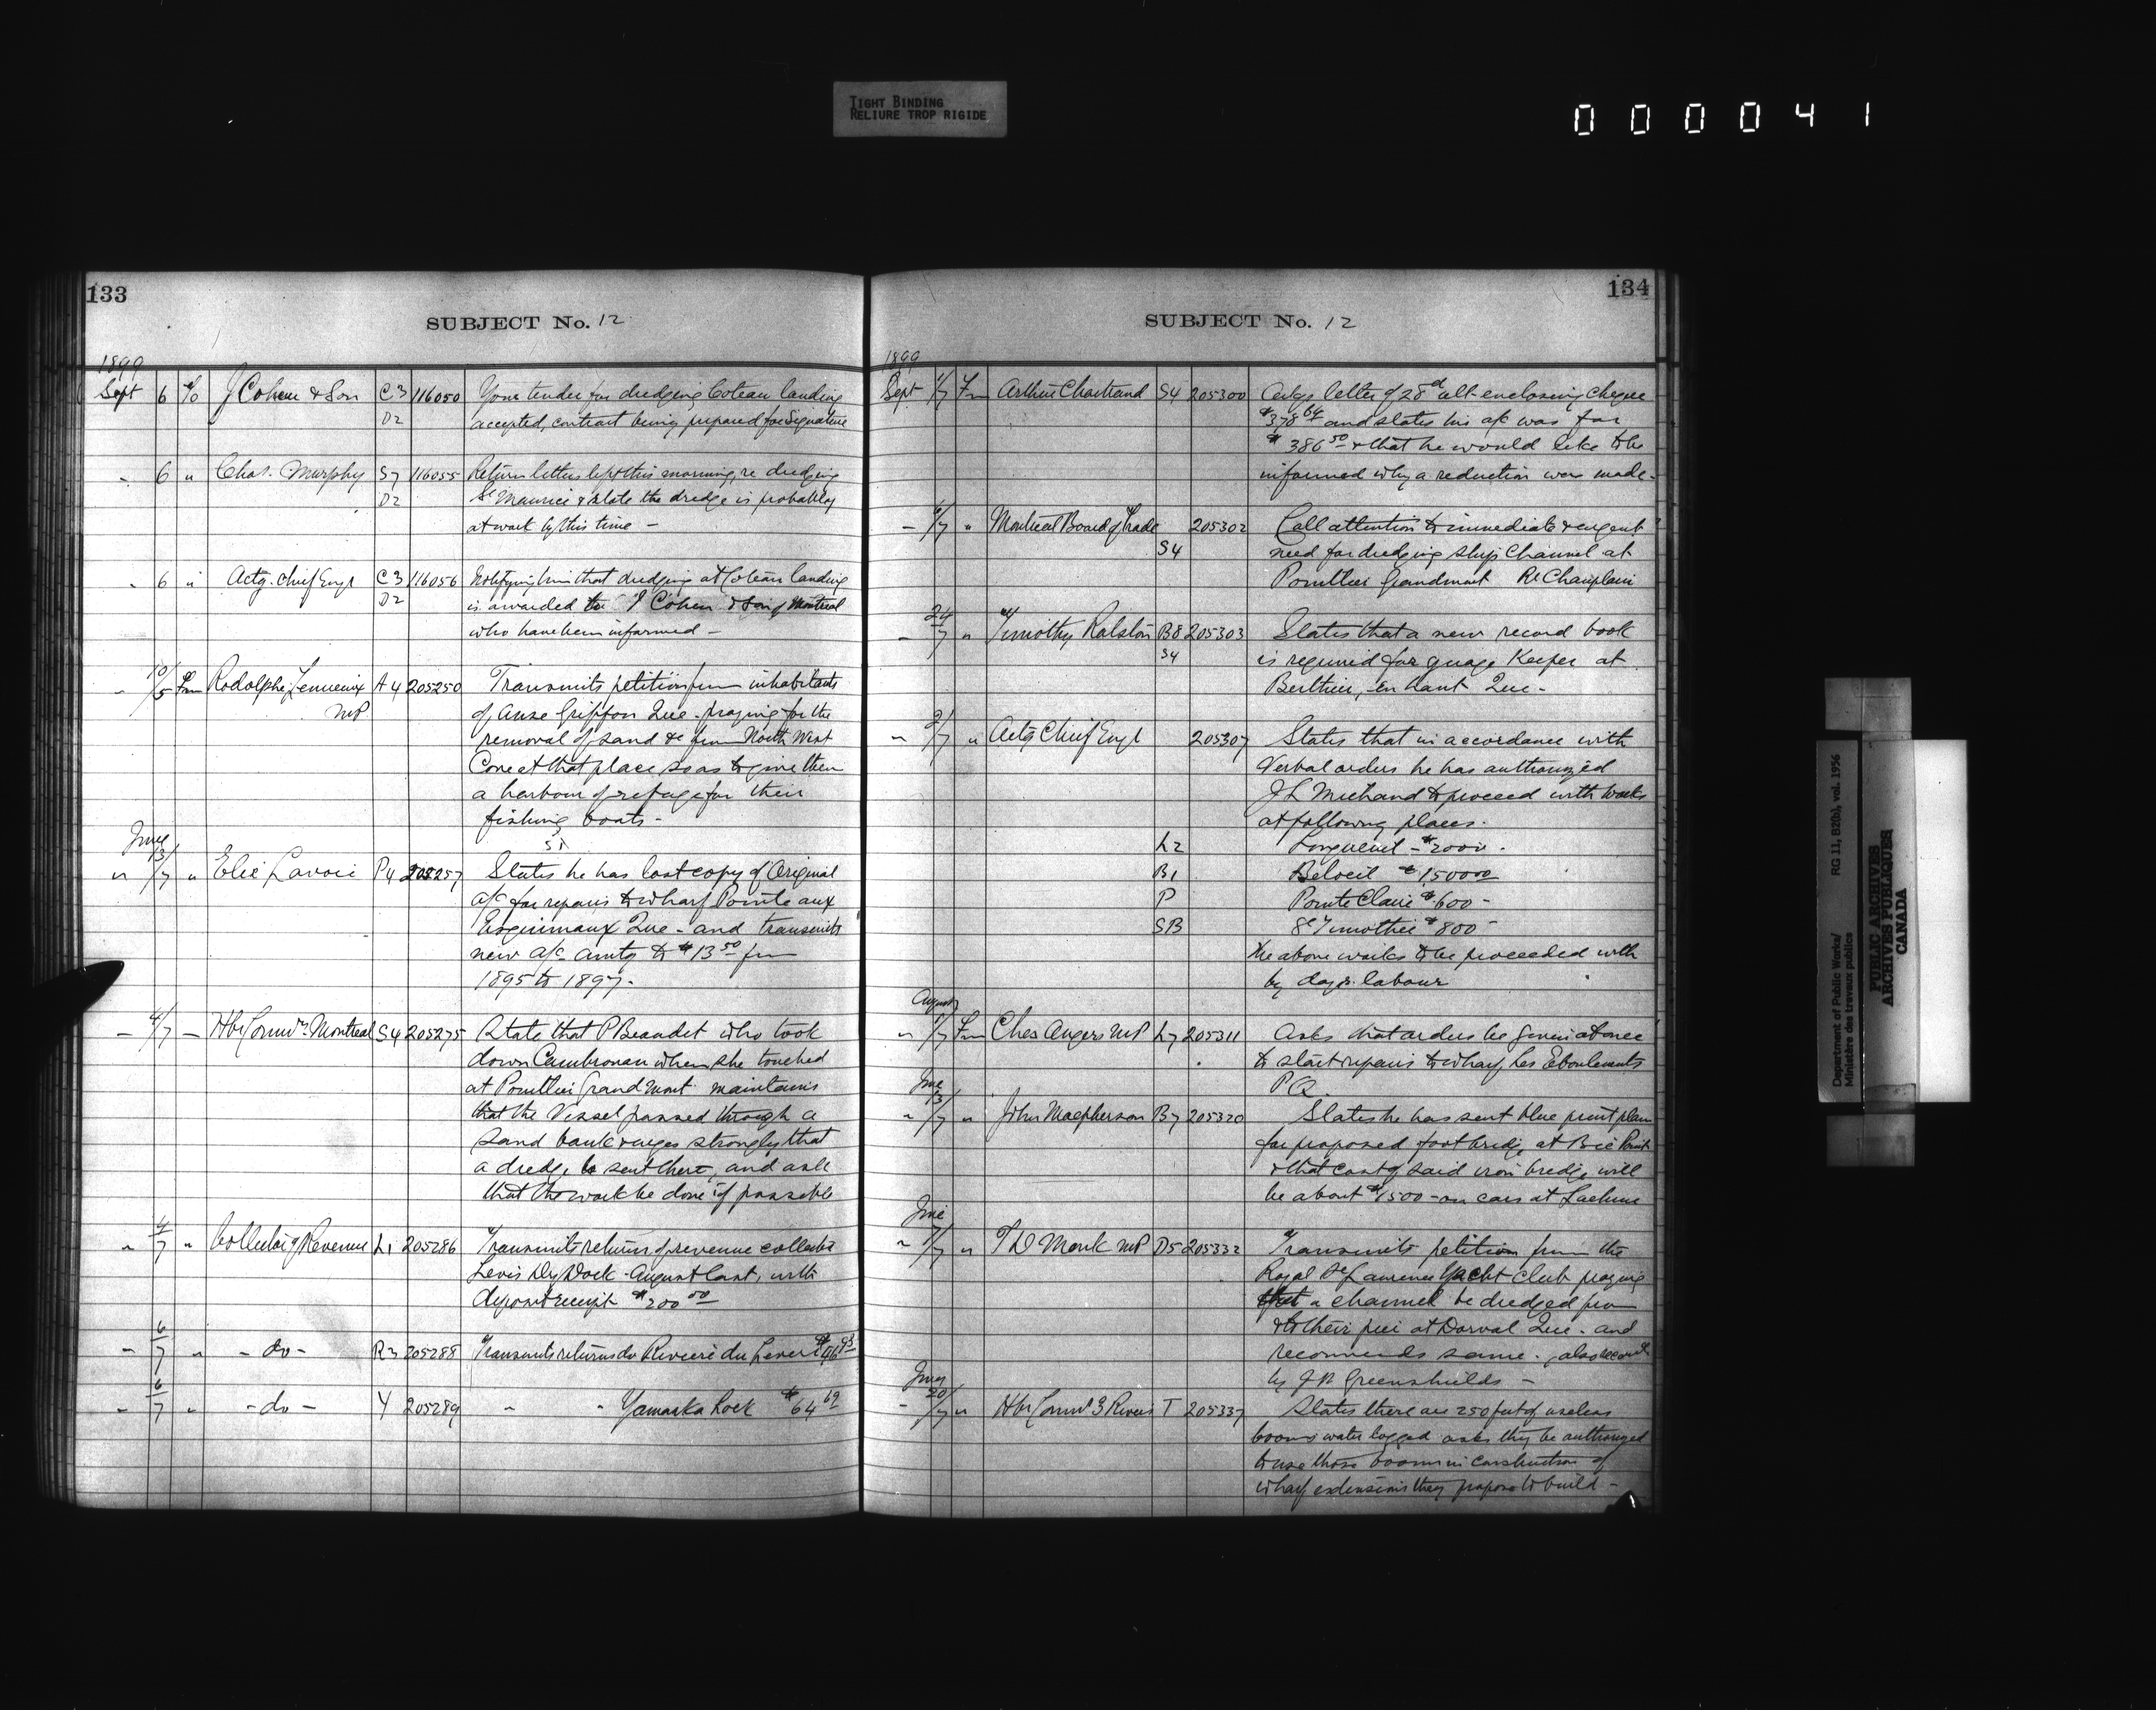 TIGHT BINDING
RELIURE TROP RIGIDE
000041
133
SUBJECT No. 12
1899
Sept 6 To J Cohen & Son C3 116050 Your tender for dredging Coteau landing
D2 accepted, contract being prepared for signature
" 6 " Chas. Murphy S7 116055 Return letters left this morning, re dredging
D2 St Maurice & state the dredge is probably
at work by this time –
" 6 " Actg. Chief Engr C3 116056 Notifying him that dredging at Coteau landing
D2 is awarded to J Cohen & Son of Montreal
who have been informed –
" 10/5 Fm Rodolphe Lemieux A4 205250 Transmits petition from inhabitants
MP of Anse Griffon Que. praying for the
removal of sand &c from North West
Cove at that place so as to give them
a harbour of refuge for their
fishing boats –
June
" 13/7 " Elie Lavoie P4 205257 States he has lost copy of Original
a/c for repairs to wharf Pointe aux
Esquimaux Que – and transmits
new a/c amtg to $13.50 from
1895 to 1897.
– 4/7 – Hbr Commrs. Montreal S4 205275 State that P Beaudet who took
down Cambroman when she touched
at Pouillier Grand Mont maintains
that the Vessel passed through a
sand bank & urges strongly that
a dredge be sent there, and ask
that the work be done if possible
" 4/7 " Collector of Revenue L1 205286 Transmits return of revenue collected
Levis Dry Dock – August last, with
deposit receipt $200.00
– 6/7 " – do – R3 205288 Transmits returns do Riviere du Lievre
" 6/7 " – do – Y 205289 " " Yamaska Lock $64.69
134
SUBJECT No. 12
1899
Sept 1/7 Fm Arthur Chartrand S4 205300 Ackgs letter of 28th ult – enclosing cheque
$378.64 and states his a/c was for
$386.50 & that he would like to be
informed why a reduction was made –
– 6/7 " Montreal Board of Trade 205302 Call attention to immediate & urgent
S4 need for dredging ship Channel at
Pouillier Grandmont Re Champlain
– 24/7 " Timothy Ralston B8 205303 States that a new record book
S4 is required for guage Keeper at
Berthier, en haut Que –
" 2/7 " Actg Chief Engr 205307 States that in accordance with
Verbal orders he has authorized
J L Michaud to proceed with works
at following places –
L2 Longueuil – $2000 –
B1 Beloeil $1500.00
P Pointe Claire $600 –
SB St Timothée $800 –
the above works to be proceeded with
by days labour
August
" 5/7 Fm Chas Angers MP L7 205311 Asks that orders be given at once
to start repairs to wharf Les Eboulements
P Q
June
" 13/7 " John Macpherson B7 205320 States he has sent blue print plan
for proposed foot bridge at Bic Point
& that cost of said iron bridge will
be about $1500 – on cars at Lachine
June
" 7/7 " F D Monk MP D5 205332 Transmits petition from the
Royal St Lawrence Yacht Club praying
that a channel be dredged from
& to their pier at Dorval Que – and
recommends same – also recomd
by J N Greenshields –
June
– 20/7 " Hbr Commrs 3 Rivers T 205337 States there are 250 feet of useless
booms water logged asks they be authorized
to use those booms in construction of
wharf extensions they propose to build –
Department of Public Works/ RG 11, B2(b), vol. 1956
Ministère des travaux publics
PUBLIC ARCHIVES
ARCHIVES PUBLIQUES
CANADA